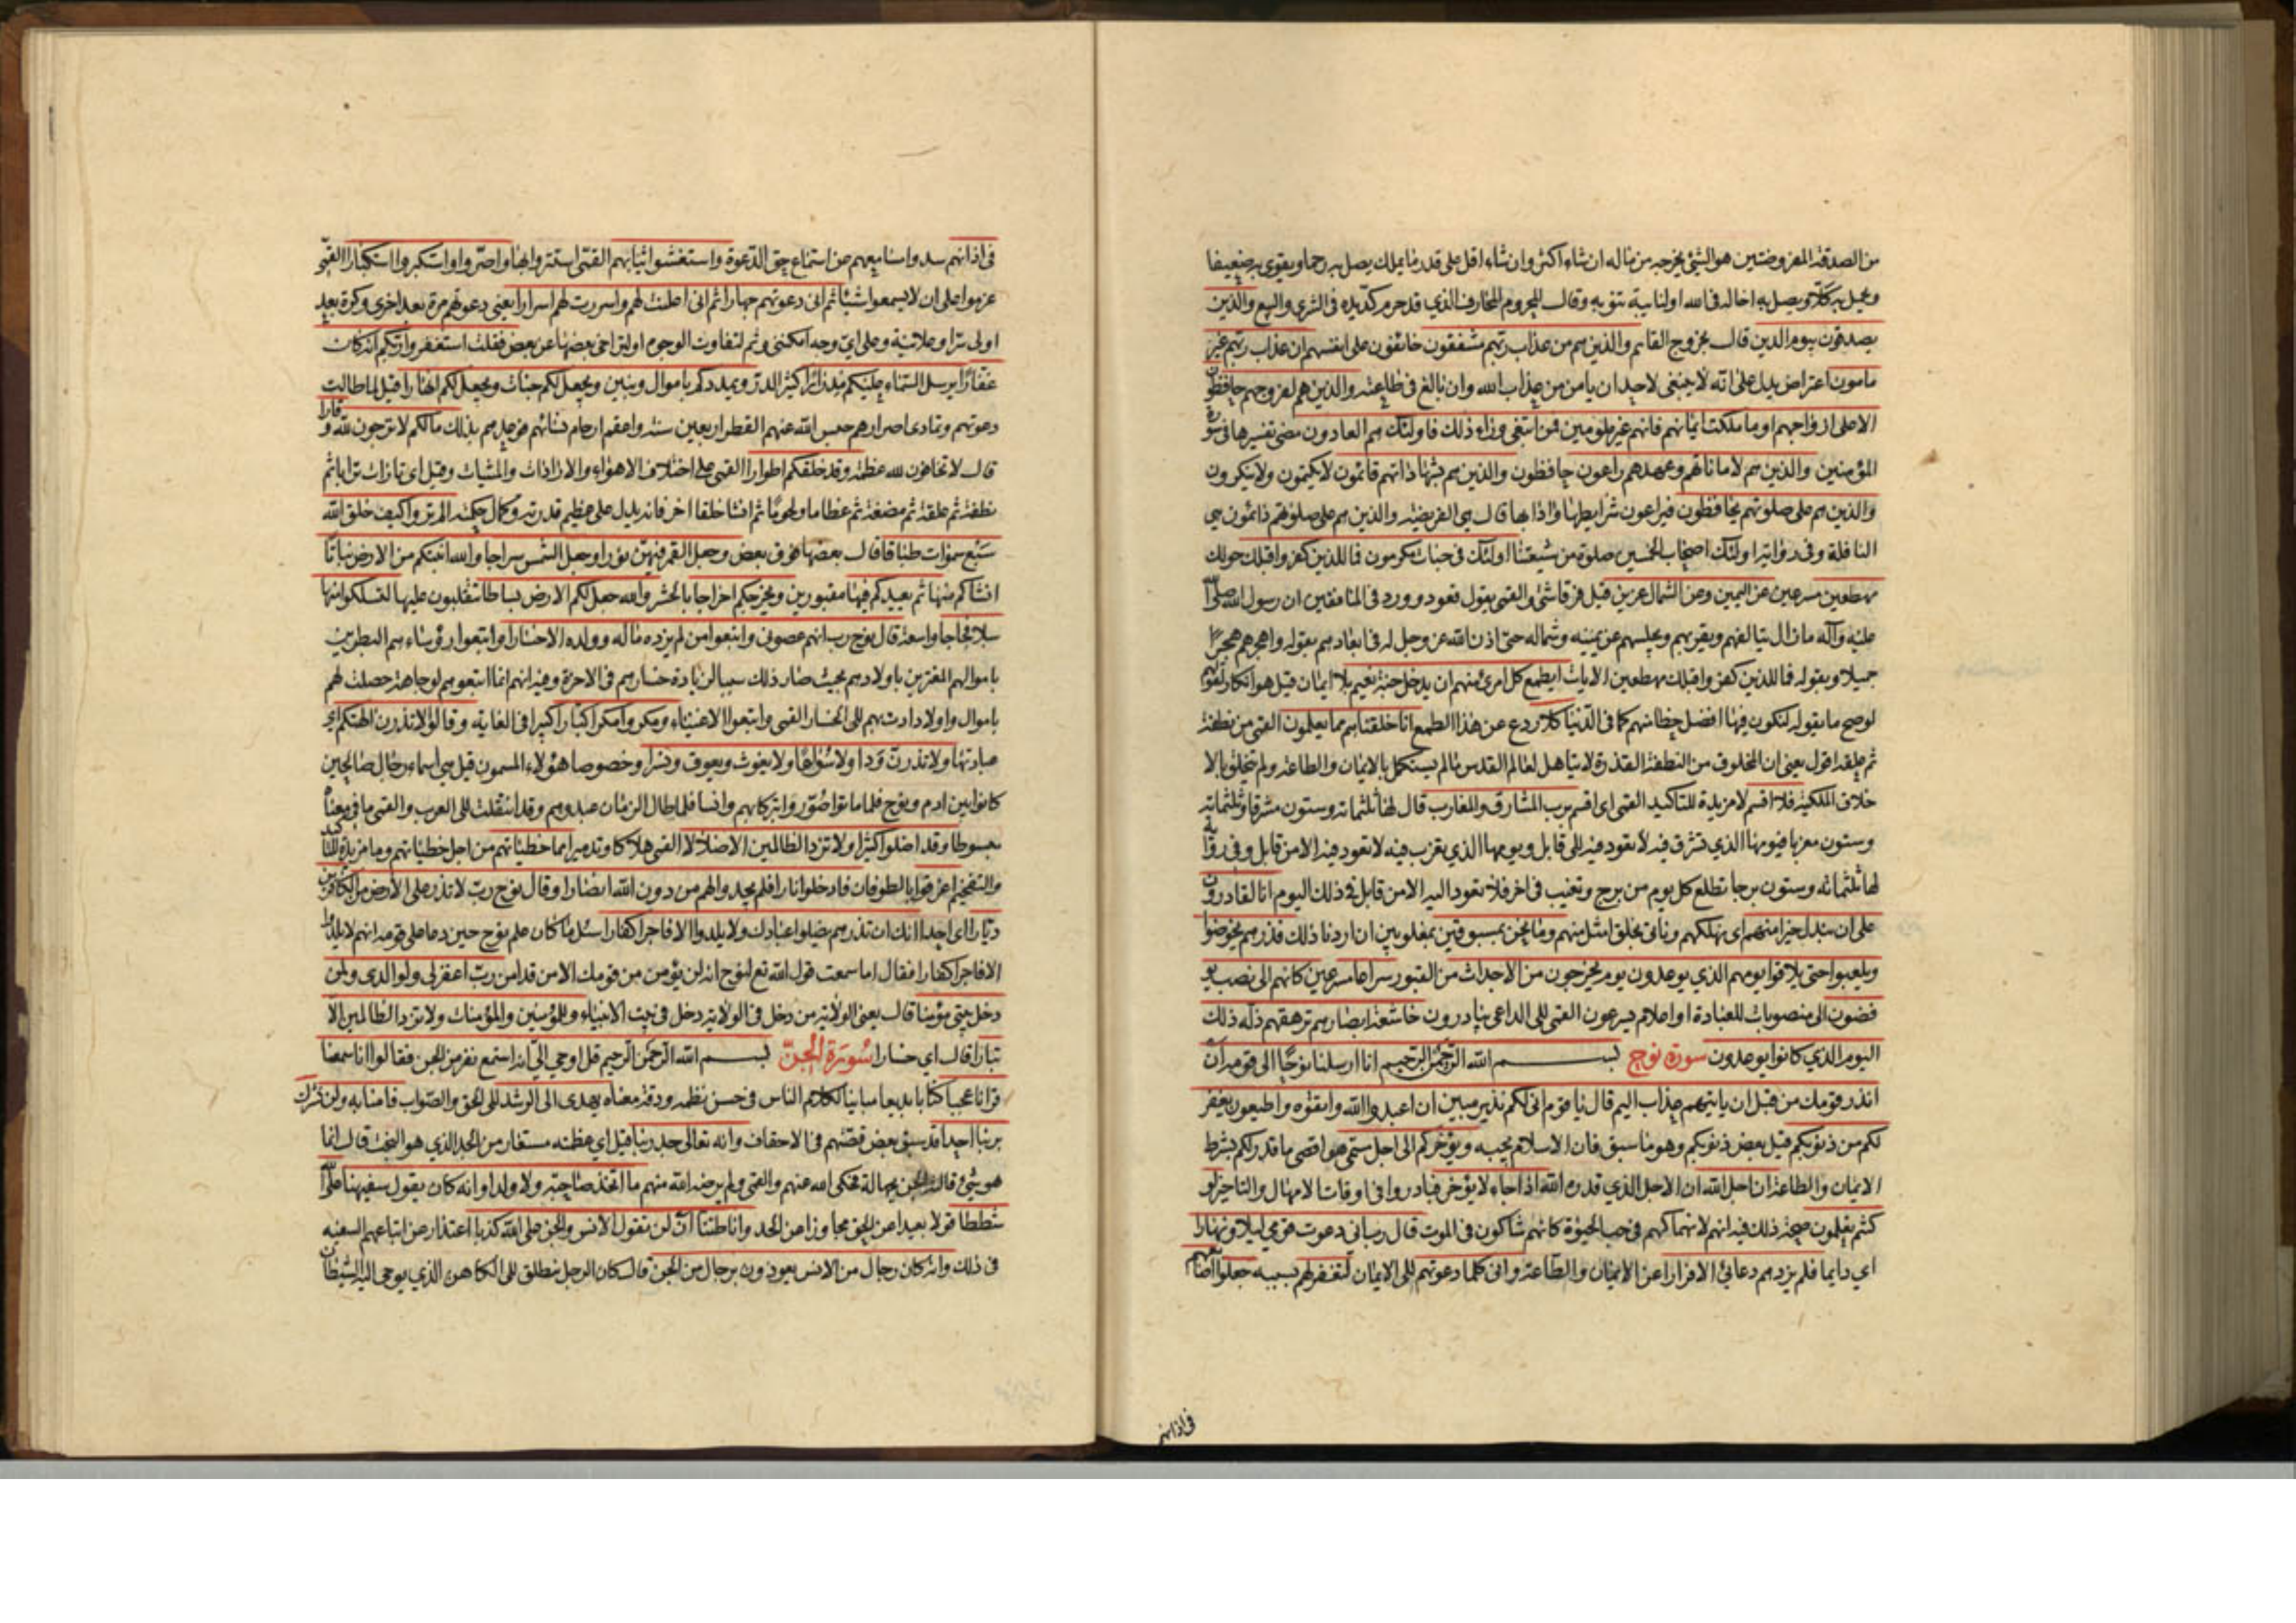 من الصدقة المفروضتين هو الشيئ يخرجه من ماله ان شاء اكثر وان شاء اقل على قدر ما يملك يصل به رحما ويقوى به ضعيفا
ويحمل به كلا ويصل به اخا له في الله او لنائبة تنوبه وقال المحروم المحارف الذي قد حرم كد يده في الشرى والبيع والذين
يصدقون بيوم الدين قال بخروج القائم والذين هم من عذاب ربهم مشفقون خائفون على انفسهم ان عذاب ربهم غير
مامون اعتراض يدل على انه لا ينبغي لاحد ان يامن من عذاب الله وان بالغ في طاعته والذين هم لفروجهم حافظون
الا على ازواجهم او ما ملكت ايمانهم فانهم غير ملومين فمن ابتغى وراء ذلك فاولئك هم العادون مضى تفسيرها في سورة
المؤمنين والذين هم لاماناتهم وعهدهم راعون حافظون والذين هم بشهاداتهم قائمون لا يكتمون ولا ينكرون
والذين هم على صلوتهم يحافظون فيراعون شرايطها وادابها قال هي الفريضة والذين هم على صلوتهم دائمون هي
النافلة وفي رواية اولئك اصحاب الخمسين صلوة من شيعتنا اولئك في جنات مكرمون فما للذين كفروا قبلك حولك
مهطعين مسرعين عن اليمين وعن الشمال عزين قيل فرقا شتى والقمي يقول قعود وورد في المنافقين ان رسول الله صلى الله
عليه وآله ما زال يتالفهم ويقربهم ويجلسهم عن يمينه وشماله حتى اذن الله عز وجل له في ابعادهم بقوله واهجرهم هجرا
جميلا وبقوله فما للذين كفروا قبلك مهطعين الايات ايطمع كل امرئ منهم ان يدخل جنة نعيم بلا ايمان قيل هو انكار لقولهم
لو صح ما يقوله لنكون فيها افضل حظا منهم كما في الدنيا كلا ردع عن هذا الطمع انا خلقناهم مما يعلمون القمي من نطفة
ثم علقة اقول يعني ان المخلوق من النطفة القذرة لا يتاهل لعالم القدس ما لم يستكمل بالايمان والطاعة ولم يتخلق بالا
خلاق الملكية فلا اقسم لا مزيدة للتاكيد القمي اي اقسم برب المشارق والمغارب قال لها ثلثمائة وستون مشرقا وثلثمائة
وستون مغربا فيومها الذي تشرق فيه لا تعود فيه الى قابل ويومها الذي يغرب فيه لا تعود فيه الا من قابل وفي رواية
لها ثلثمائة وستون برجا تطلع كل يوم من برج وتغيب في اخر فلا تعود اليه الا من قابل في ذلك اليوم انا لقادرون
على ان نبدل خيرا منهم اي نهلكهم وناتي بخلق امثل منهم وما نحن بمسبوقين بمغلوبين ان اردنا ذلك فذرهم يخوضوا
ويلعبوا حتى يلاقوا يومهم الذي يوعدون يوم يخرجون من الاجداث من القبور سراعا مسرعين كانهم الى نصب يو
فضون الى منصوبات للعبادة او اعلام يسرعون القمي الى الداعي ينادرون خاشعة ابصارهم ترهقهم ذلة ذلك
اليوم الذي كانوا يوعدون سورة نوح بسم الله الرحمن الرحيم انا ارسلنا نوحا الى قومه ان
انذر قومك من قبل ان ياتيهم عذاب اليم قال يا قوم اني لكم نذير مبين ان اعبدوا الله واتقوه واطيعون يغفر
لكم من ذنوبكم قيل بعض ذنوبكم وهو ما سبق فان الاسلام يجبه ويؤخركم الى اجل مسمى هو اقصى ما قدر لكم بشرط
الايمان والطاعة ان اجل الله ان الاجل الذي قدره الله اذا جاء لا يؤخر فبادروا في اوقات الامهال والتاخير لو
كنتم تعلمون صحة ذلك فيه انهم لانهماكهم في حب الحيوة كانهم شاكون في الموت قال رب اني دعوت قومي ليلا ونهارا
اي دايما فلم يزدهم دعائي الا فرارا عن الايمان والطاعة واني كلما دعوتهم الى الايمان لتغفر لهم بسببه جعلوا اصابعهم
في اذانهم
في اذانهم سدوا مسامعهم من استماع حق الدعوة واستغشوا ثيابهم القمي استتروا بها واصروا واستكبروا استكبارا القمي
عزموا على ان لا يسمعوا شيئا ثم اني دعوتهم جهارا ثم اني اعلنت لهم واسررت لهم اسرارا يعني دعوتهم مرة بعد اخرى وكرة بعد
اولى سرا وعلانية وعلى اي وجه امكنني وثم لتفاوت الوجوه او لتراخي بعضها عن بعض فقلت استغفروا ربكم انه كان
غفارا يرسل السماء عليكم مدرارا كثير الدر ويمددكم باموال وبنين ويجعل لكم جنات ويجعل لكم انهارا قيل لما طالت
دعوتهم وتمادى اصرارهم حبس الله عنهم القطر اربعين سنة واعقم ارحام نسائهم فوعدهم بذلك ما لكم لا ترجون لله وقارا
قال لا تخافون لله عظمة وقد خلقكم اطوارا القمي على اختلاف الاهواء والارادات والمشيات وقيل اي تارات ترابا ثم
نطفة ثم علقة ثم مضغة ثم عظاما ولحوما ثم انشا خلقا اخر فانه يدل على عظيم قدرته وكمال حكمته الم تروا كيف خلق الله
سبع سموات طباقا قال بعضها فوق بعض وجعل القمر فيهن نورا وجعل الشمس سراجا والله انبتكم من الارض نباتا
انشاكم منها ثم يعيدكم فيها مقبورين ويخرجكم اخراجا بالحشر والله جعل لكم الارض بساطا تتقلبون عليها لتسلكوا منها
سبلا فجاجا واسعة قال نوح رب انهم عصوني واتبعوا من لم يزده ماله وولده الا خسارا واتبعوا رؤساءهم البطرين
باموالهم المغترين باولادهم بحيث صار ذلك سببا لزيادة خسارهم في الاخرة وفيه انهم انما اتبعوهم لوجاهة حصلت لهم
باموال واولاد ادت بهم الى الخسار القمي واتبعوا الاغنياء ومكروا مكرا كبارا كبيرا في الغاية وقالوا لا تذرن الهتكم اي
عبادتها ولا تذرن ودا ولا سواعا ولا يغوث ويعوق ونسرا وخصوصا هؤلاء المسمون قيل هي اسماء رجال صالحين
كانوا بين ادم ونوح فلما ماتوا صوروا تبركا بهم وانسا فلما طال الزمان عبدوهم وقد انتقلت الى العرب والقمي ما في معناه
مبسوطا وقد اضلوا كثيرا ولا تزد الظالمين الا ضلالا القمي هلاكا وتدميرا مما خطيئاتهم من اجل خطيئاتهم وما مزيدة للتاكيد
والتفخيم اغرقوا بالطوفان فادخلوا نارا فلم يجدوا لهم من دون الله انصارا وقال نوح رب لا تذر على الارض من الكافرين
ديارا اي احدا انك ان تذرهم يضلوا عبادك ولا يلدوا الا فاجرا كفارا سئل ما كان علم نوح حين دعا على قومه انهم لا يلدوا
الا فاجرا كفارا فقال اما سمعت قول الله تع لنوح انه لن يؤمن من قومك الا من قد امن رب اغفر لي ولوالدي ولمن
دخل بيتي مؤمنا قال يعني الولاية من دخل في الولاية دخل في بيت الانبياء وللمؤمنين والمؤمنات ولا تزد الظالمين الا
تبارا قال اي خسارا سورة الجن بسم الله الرحمن الرحيم قل اوحي الي انه استمع نفر من الجن فقالوا انا سمعنا
قرانا عجبا كتابا بديعا مباينا لكلام الناس في حسن نظمه ودقة معناه يهدي الى الرشد الى الحق والصواب فامنا به ولن نشرك
بربنا احدا قد سبق بعض قصتهم في الاحقاف وانه تعالى جد ربنا قيل اي عظمته مستعار من الجد الذي هو البخت قال انما
هو شئ قاله الجن بجهالة فحكى الله عنهم والقمي ولم يرضه الله منهم ما اتخذ صاحبة ولا ولدا وانه كان يقول سفيهنا على الله
شططا قولا بعيدا عن الحق مجاوزا عن الحد وانا ظننا ان لن تقول الانس والجن على الله كذبا اعتذار عن اتباعهم السفيه
في ذلك وانه كان رجال من الانس يعوذون برجال من الجن قال كان الرجل ينطلق الى الكاهن الذي يوحي اليه الشيطان